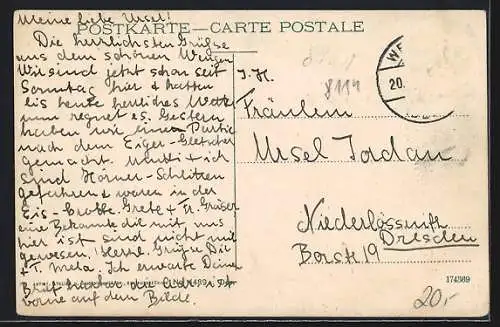 Meine liebe Ursel!
POSTKARTE—CARTE POSTALE
Die herrlichsten Grüße
aus dem schönen Wengen
Wir sind jetzt schon seit
Sonntag hier & hatten
bis heute herrliches Wetter
nun regnet es. Gestern
haben wir eine Partie
nach dem Eiger-Gletscher
gemacht. Mutti & ich
sind Hörner-Schlitten
gefahren & waren in der
Eis-Grotte. Grete & Fr.
eine Bekannte die mit uns
hier ist sind nicht mit
gewesen. Grüße Dir
& T. Meta. Ich erwarte Deinen
Brief die Adresse ist
vorne auf dem Bilde.
WE
20.
8114
I. H.
Fräulein
Ursel Jordan
Niederlössnitz
Dresden
Borstr. 19
174369
20,-